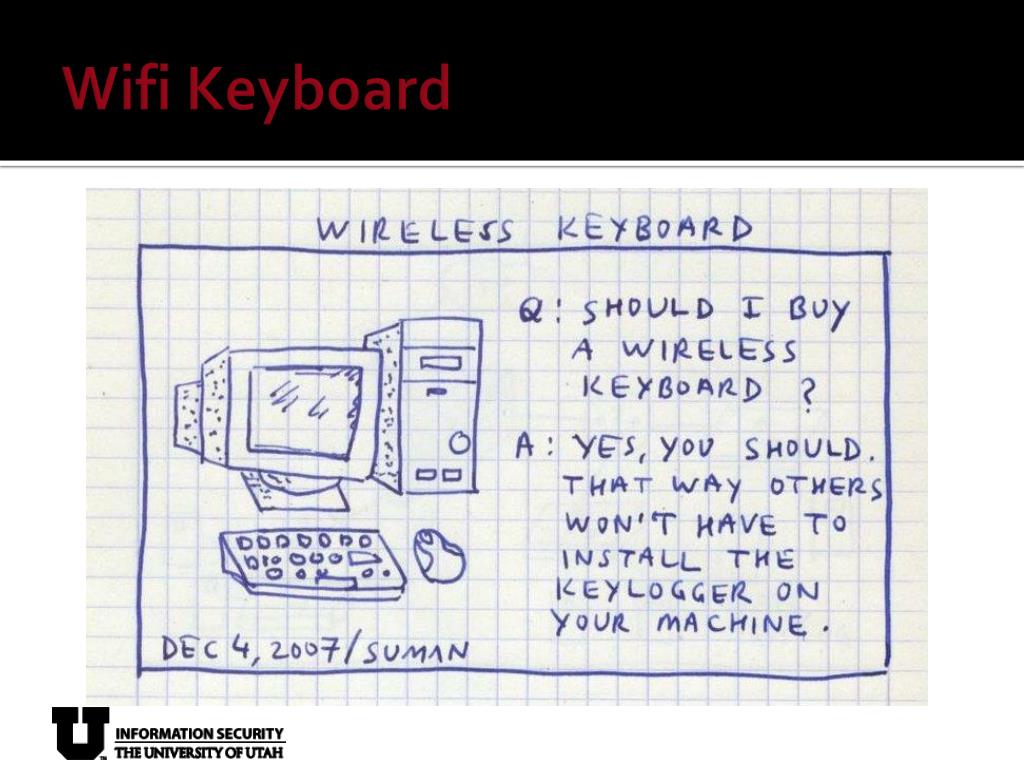 Wifi Keyboard
WIRELESS KEYBOARD
Q: SHOULD I BUY
A WIRELESS
KEYBOARD ?
A: YES, YOU SHOULD.
THAT WAY OTHERS
WON'T HAVE TO
INSTALL THE
KEYLOGGER ON
YOUR MACHINE.
DEC 4, 2007/SUMAN
U
INFORMATION SECURITY
THE UNIVERSITY OF UTAH